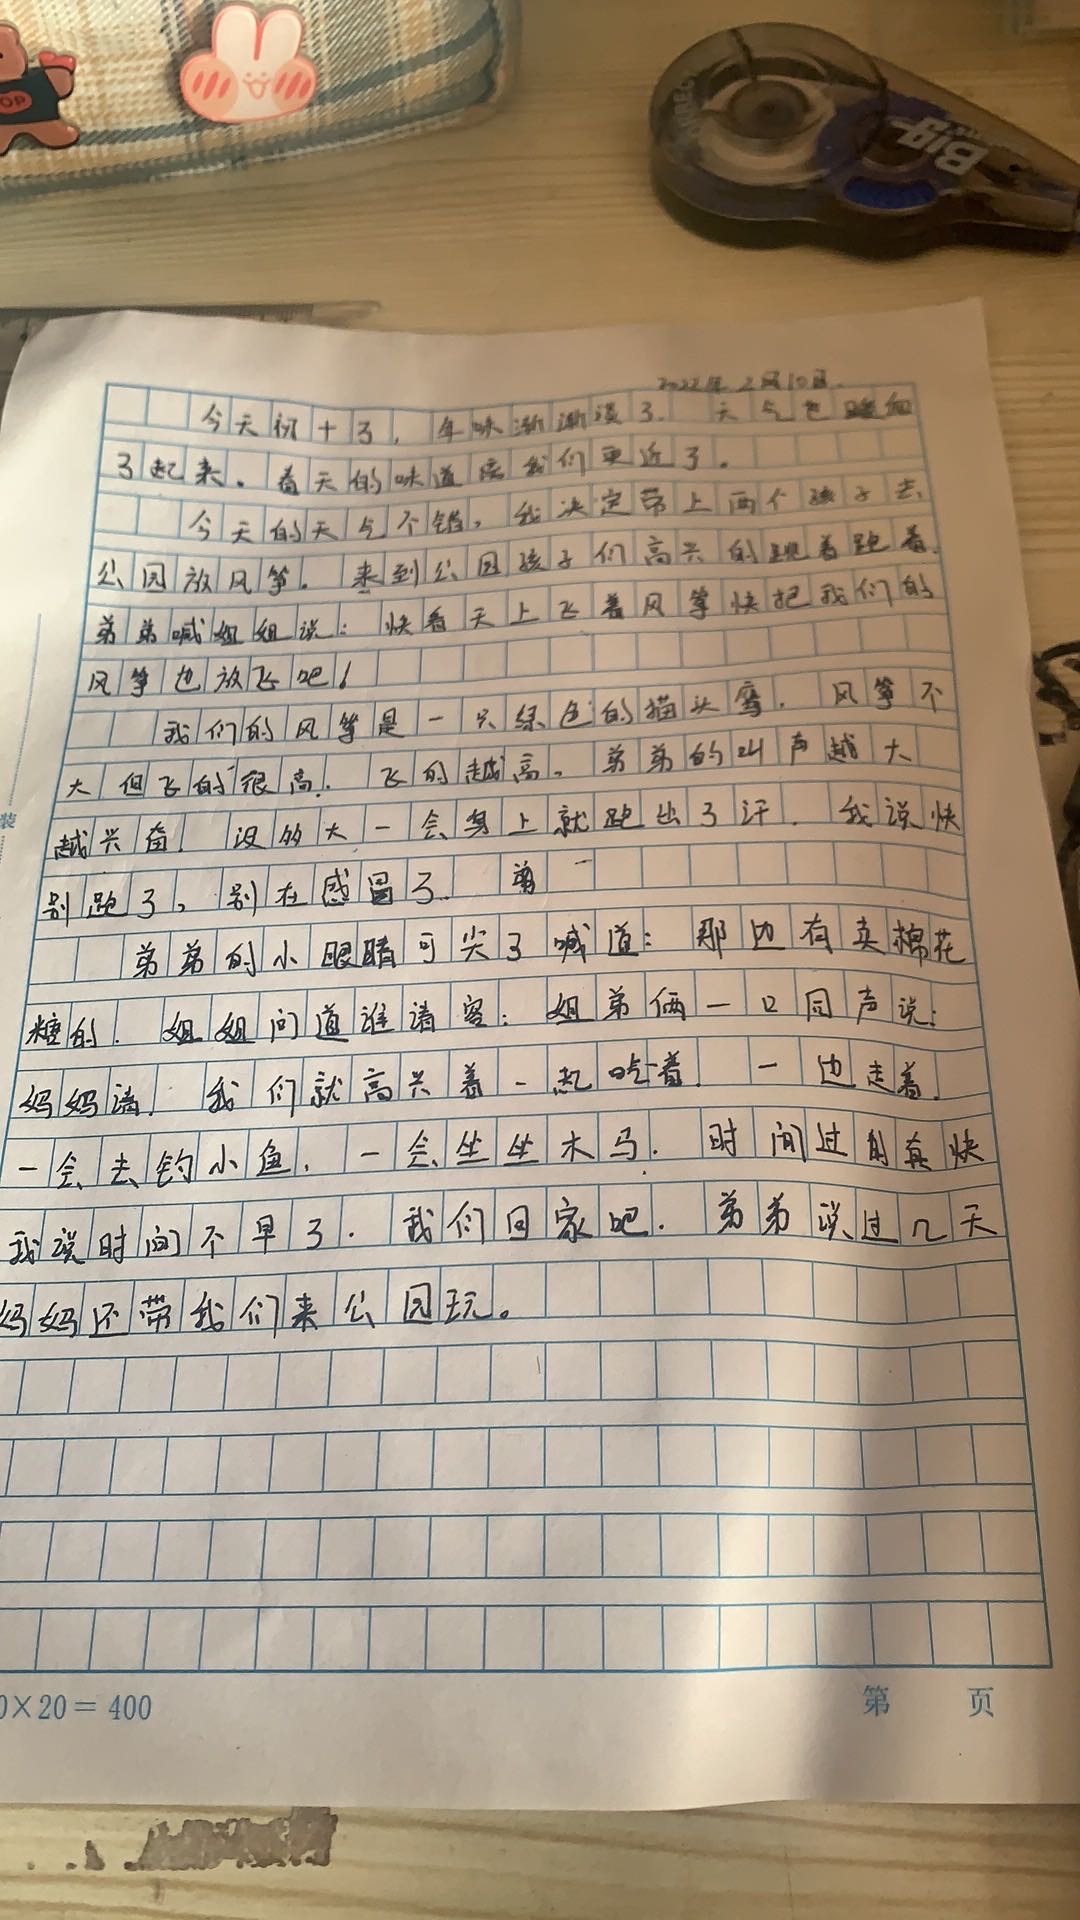 TOP
Big
2022年2月10日.
今天初十了，年味渐渐淡了.天气也暖和
了起来。春天的味道离我们更近了。
今天的天气不错，我决定带上两个孩子去
公园放风筝。来到公园孩子们高兴的跳着跑着.
弟弟喊姐姐说：快看天上飞着风筝快把我们的
风筝也放飞吧！
我们的风筝是一只绿色的猫头鹰.风筝不
大但飞的很高.飞的越高。弟弟的叫声越大
越兴奋.没多大一会身上就跑出了汗.我说快
别跑了，别在感冒了.
弟弟的小眼睛可尖了喊道：那边有卖棉花
糖的.姐姐问道谁请客：姐弟俩一口同声说：
妈妈请.我们就高兴着一起吃着.一边走着.
一会去钓小鱼.一会坐坐木马.时间过的真快
我说时间不早了.我们回家吧.弟弟说过几天
妈妈还带我们来公园玩。
装
0×20＝400
第 页